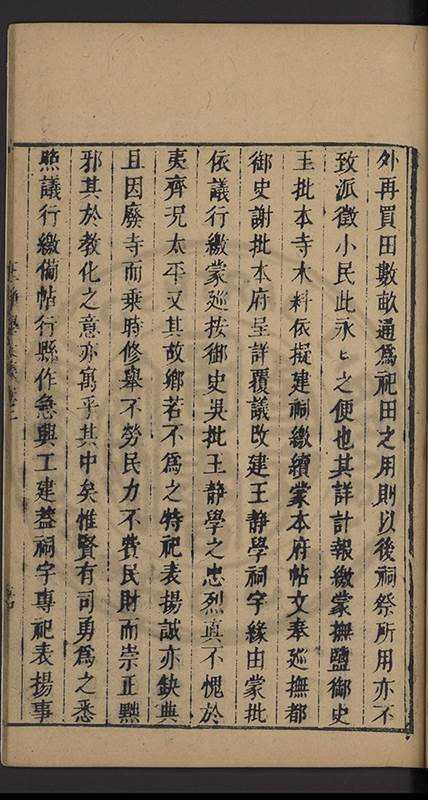 外再買田數畝通爲祀田之用則以後祠祭所用亦不
致派徵小民此永〻之便也其詳計報繳蒙撫鹽御史
王批本寺木料依擬建祠繳續蒙本府帖文奉巡撫都
御史謝批本府呈詳覆議改建王靜學祠宇緣由蒙批
依議行繳蒙巡按御史吳批王静學之忠烈真不愧於
夷齊况太平又其故鄉若不爲之特祀表揚誠亦缺典
且因廢寺而乗時修舉不勞民力不費民財而崇正黜
邪其於教化之意亦寓乎其中矣惟賢有司勇爲之悉
照議行繳備帖行縣作急興工建葢祠宇專祀表揚事